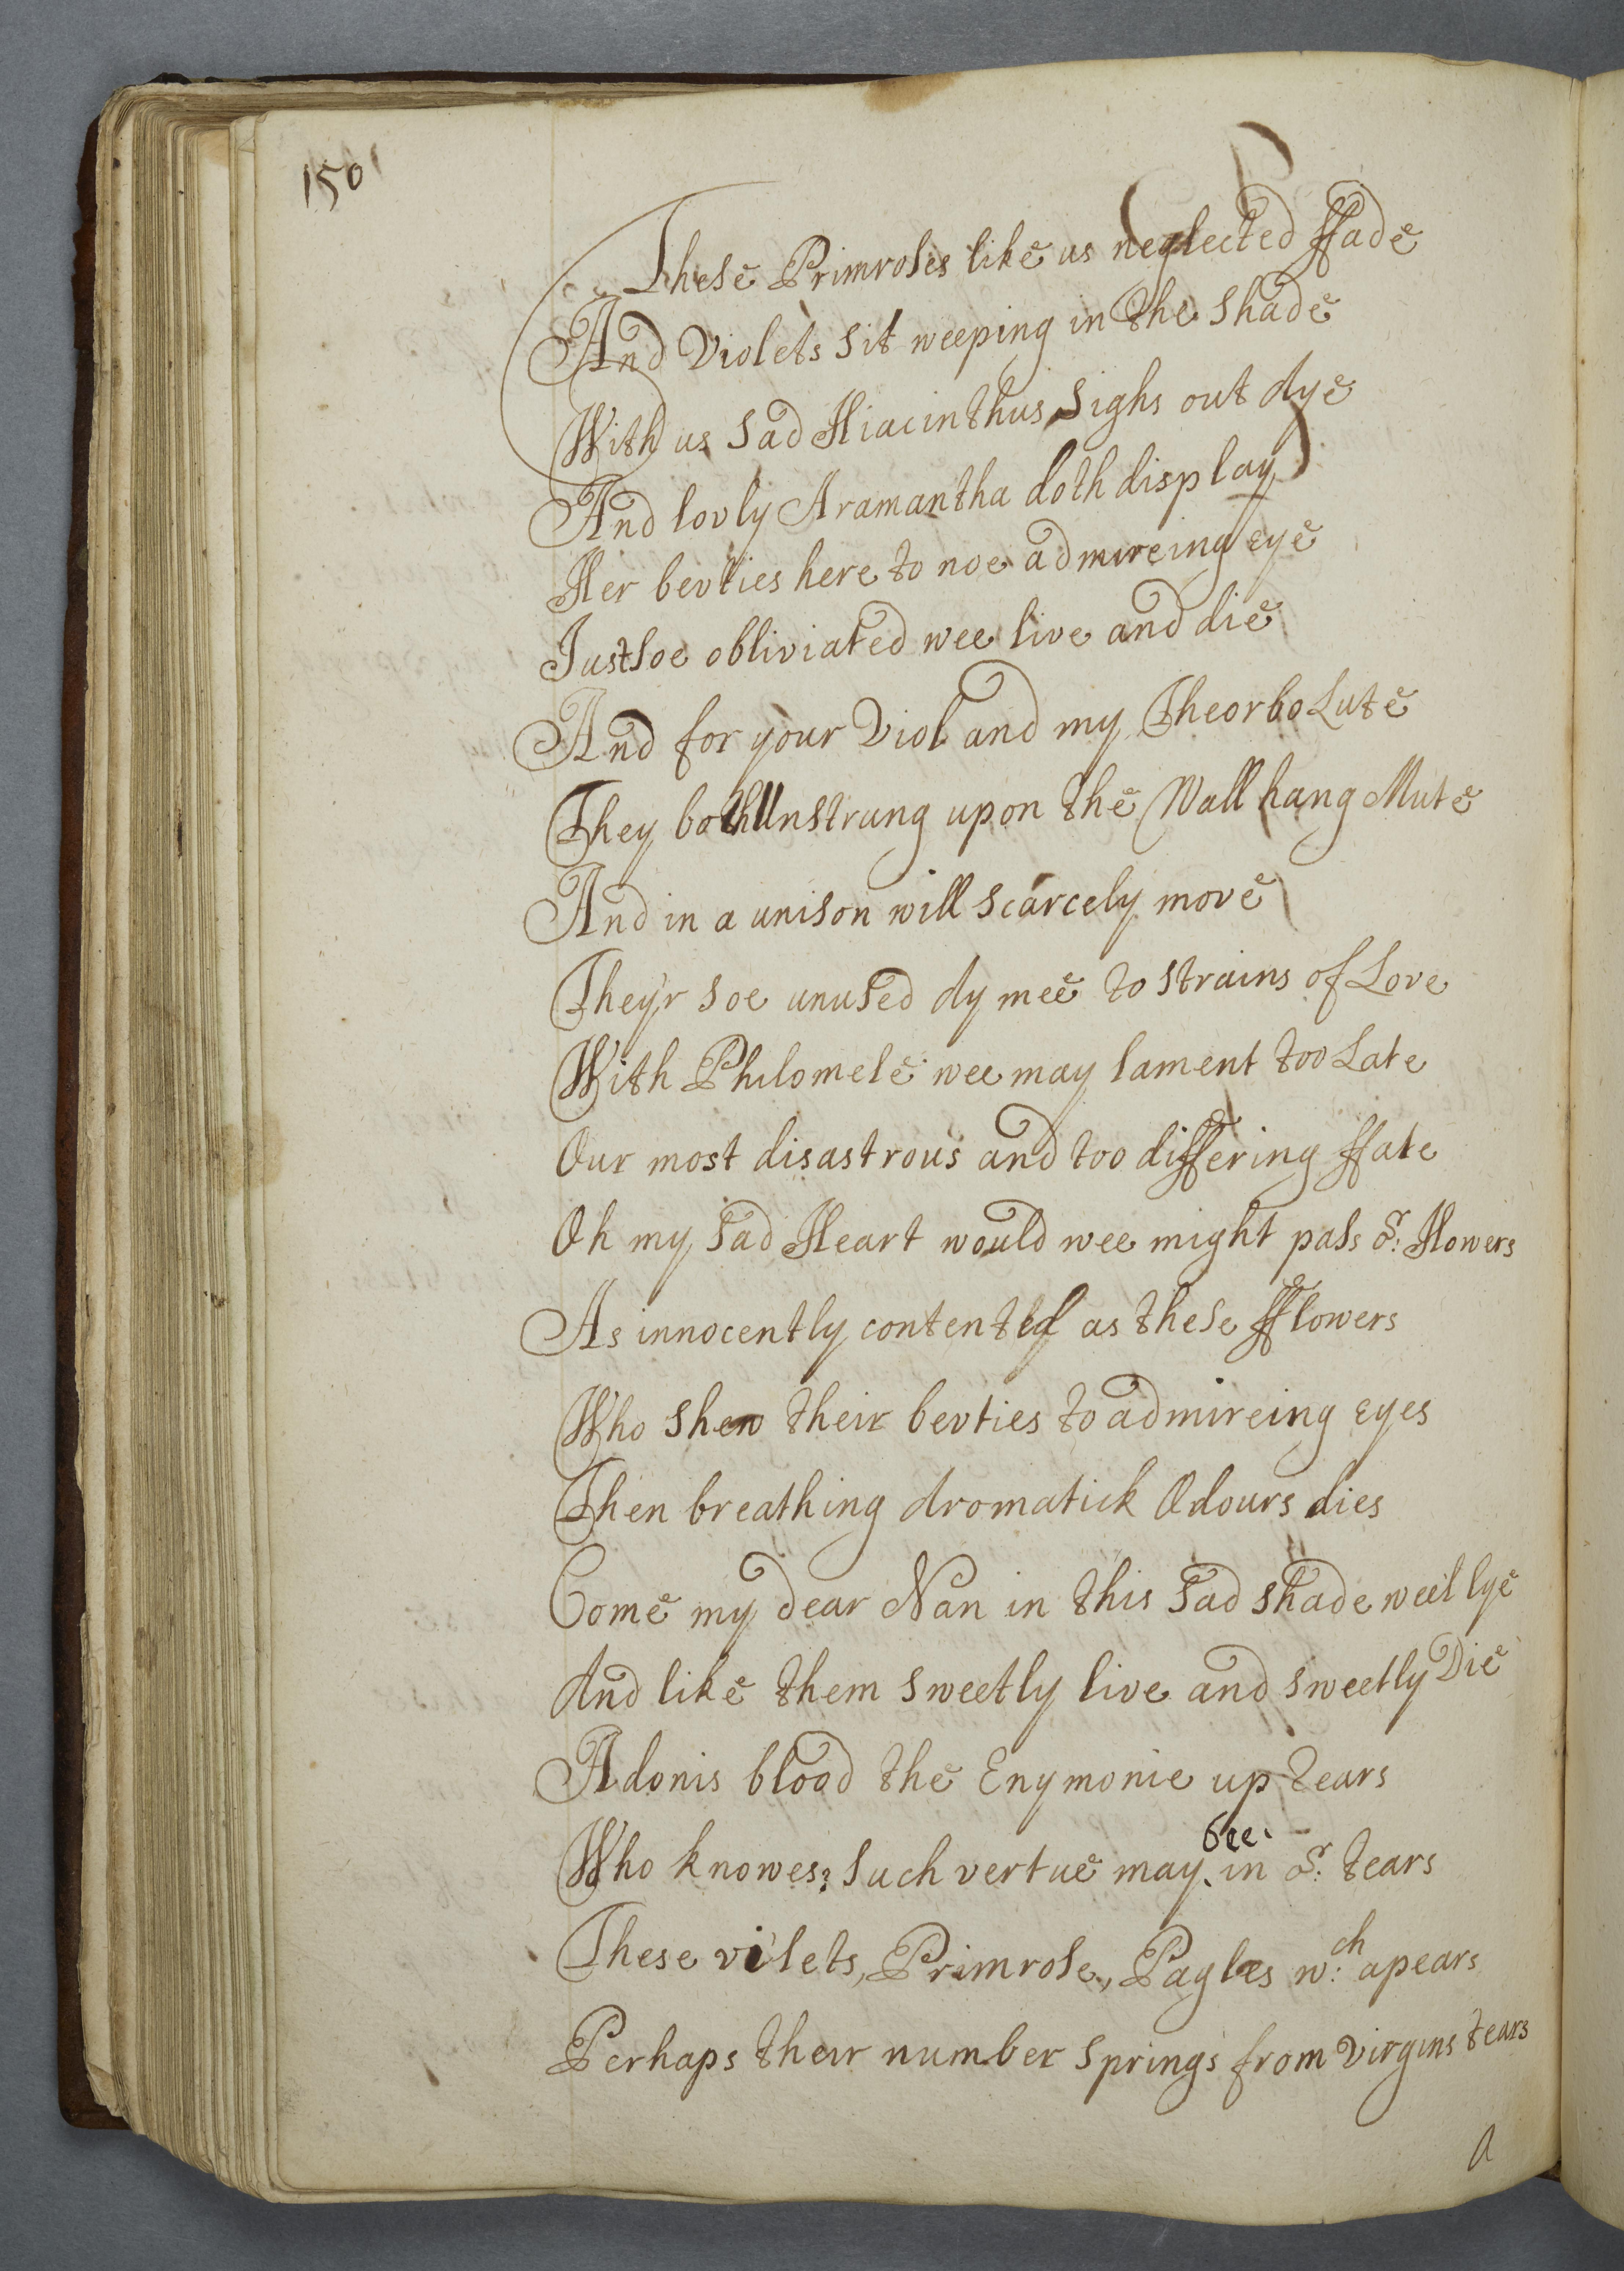 150
These Primroses like us neglected ffade
And Violets sit weeping in the shade
With us sad Hiacinthus sighs out dye
And lovly Aramantha doth display
Her bevties here to noe admireing eye
Just soe obliviated wee live and die
And for your Viol and my Theorbo Lute
They both Unstrung upon the Wall hang Mute
And in a unison will scarcely move
They'r soe unused by mee to strains of Love
With Philomele wee may lament too Late
Our most disastrous and too differing ffate
Oh my sad Heart would wee might pass or: Howers
As innocently contented as these fflowers
Who shew their bevties to admireing eyes
Then breathing Aromatick Odours dies
Come my dear Nan in this sad shade weel lye
And like them sweetly live and sweetly Die
Adonis blood the Enymonie up rears
Who knowes? such vertue may bee in or: tears
These vilets, Primrose, Pagles wch: apears
Perhaps their number springs from virgins tears
A